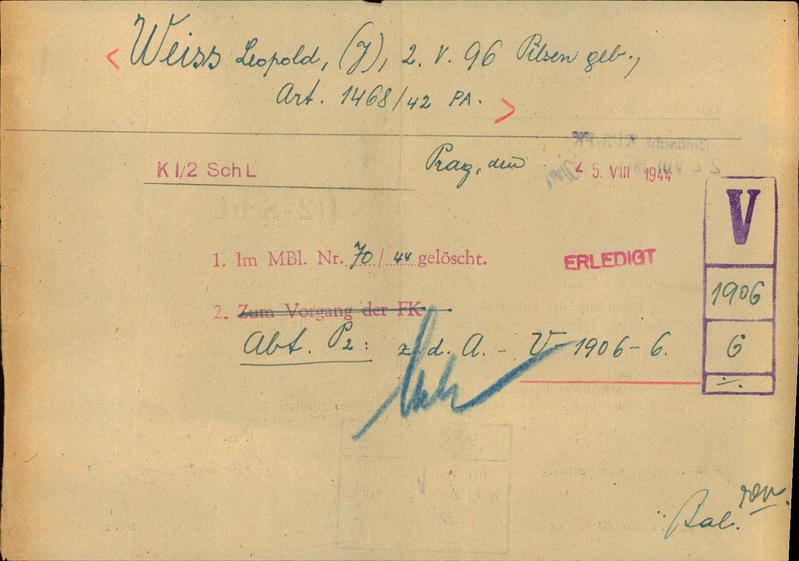 Weiss Leopold, (J), 2. V. 96 Pilsen geb.,
Art. 1468/42 PA.
K I/2 Sch L
Prag, den 5. VIII 1944
1. Im MBl. Nr. 70/44 gelöscht.
ERLEDIGT
2. Zum Vorgang der FK
Abt. P2: z. d. A. - V 1906-6.
V
1906
6
Bal.